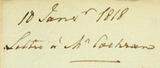 10 Janv.r 1818
Lettre à Mr Cochran